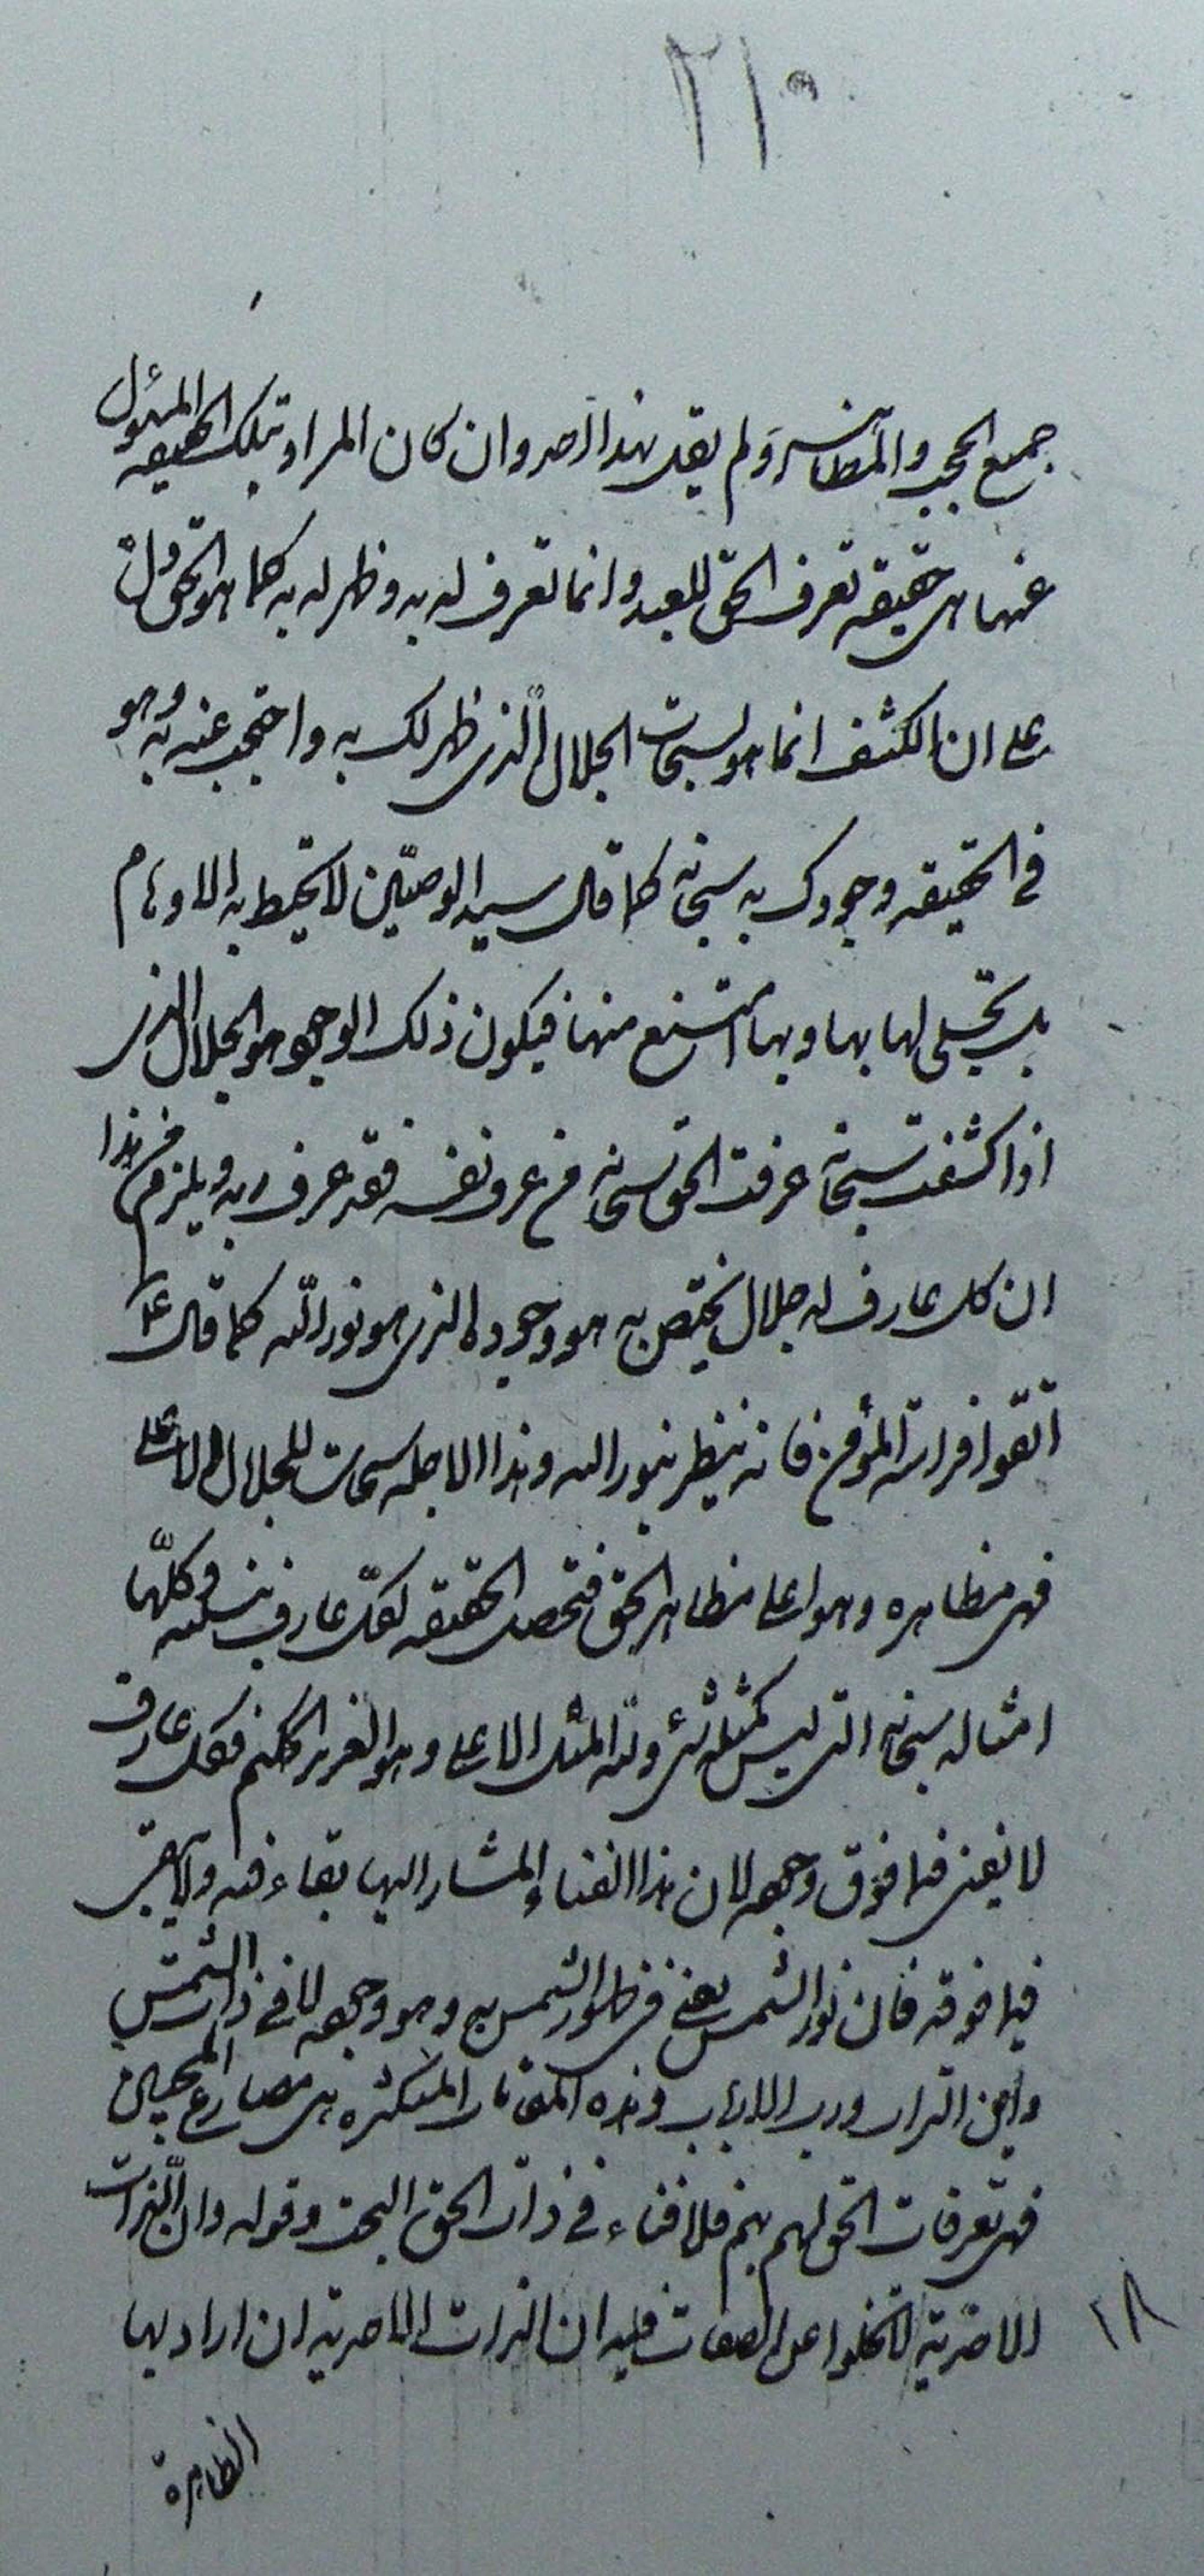 ٢١٠
جميع الحجب والمظاهر ولم يقل بهذا احد وان كان المراد بتلك الحقيقه المسئول
عنها هى حقيقه تعرف الحق للعبد وانما تعرف له به وظهر له به كما هو الحق دل
على ان الكشف انما هو لسبحات الجلال الذى ظهر لك به واحتجب عنه به وهو
فى الحقيقه وجودك به سبحانه كما قال سيد الوصيّين لا تحيط به الاوهام
بل تجلى لها بها وبها امتنع منها فيكون ذلك الوجود هو الجلال الذى
اذا كشفت سبحاته عرفت الحق سبحانه من عرف نفسه فقد عرف ربه ويلزم من هذا
ان كل عارف له جلال يختص به هو وجوده الذى هو نور الله كما قال ع
اتقوا فراسة المؤمن فانه ينظر بنور الله وهذا الاجله سبحات للجلال الاعلى
فهى مظاهره وهو اعلى مظاهر الحق فتحصل الحقيقه لكل عارف بنسبته وكلّها
امثاله سبحانه التى ليس كمثله شئ ولله المثل الاعلى وهو العزيز الحكيم فكل عارف
لا يفنى فيما فوق وجهه لان هذا الفناء المشار اليها بقاء فيه ولا يبقى
فيما فوقه فان نور الشمس يفنى فى ظهور الشمس به وهو وجهه لا فى ذات الشمس
واين التراب ورب الارباب وهذه المقامات المتكثره هى مصارع المحبين
فهى تعرفات الحق لهم بهم فلا فناء فى ذات الحق البحت وقوله وان الذات
الاحدية لا تخلوا عن الصفات فليه ان الذات الاحديه ان اراد بها
١٨
الظاهرة